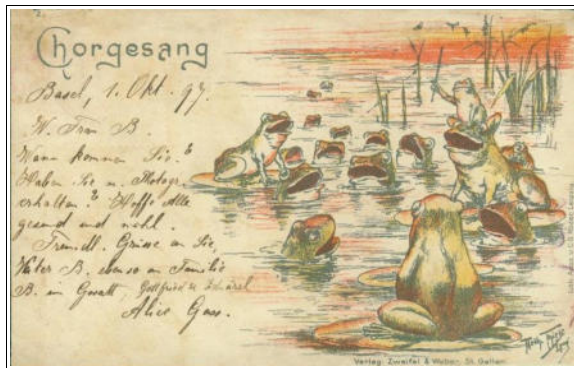 2.
Chorgesang
Basel, 1. Okt. 97.
W. Frau B.
Wann kommen Sie?
Haben Sie m. Photogr.
erhalten? Hoffe Alle
gesund und wohl.
Freundl. Grüsse an Sie,
Vater B. ebenso an Familie
B. im Gsatt, Gottfried u.
Alice Gass.
Verlag Zweifel & Weber, St. Gallen